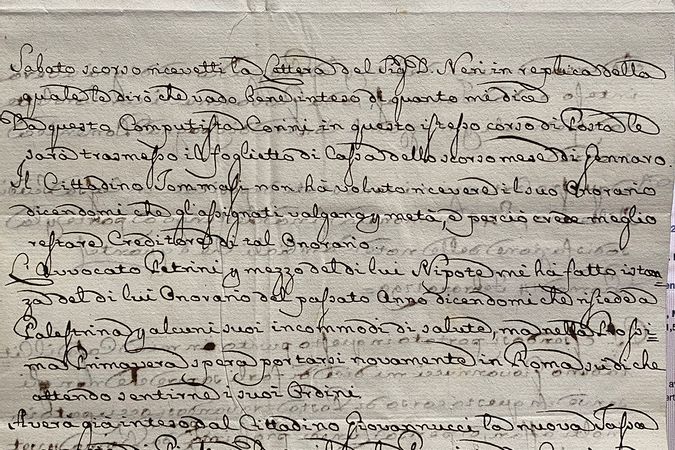 Sabato scorso ricevetti la Lettera del Sig.r D. Neri in replica della
quale le dirò che vado bene inteso di quanto mi dice
Da questo Computista Conni in questo istesso corso di Posta le
sarà trasmesso il foglietto di Cassa dello scorso mese di Gennaro.
Il Cittadino Tommasi non hà voluto ricevere il suo Onorario
dicendomi che gl'assignati valgono p metà, e perciò crede meglio
restare Creditore di tal Onorario.
L'Avvocato Petrini p mezzo del di lui Nipote mi hà fatto istan=
za del di lui Onorario del passato Anno dicendomi che risiede a
Palestrina p alcuni suoi incommodi di salute, ma nella Prossi=
ma Primavera spera portarsi novamente in Roma su di che
attendo sentirne i suoi Ordini
Averà già inteso dal Cittadino Giovannucci la nuova Tassa